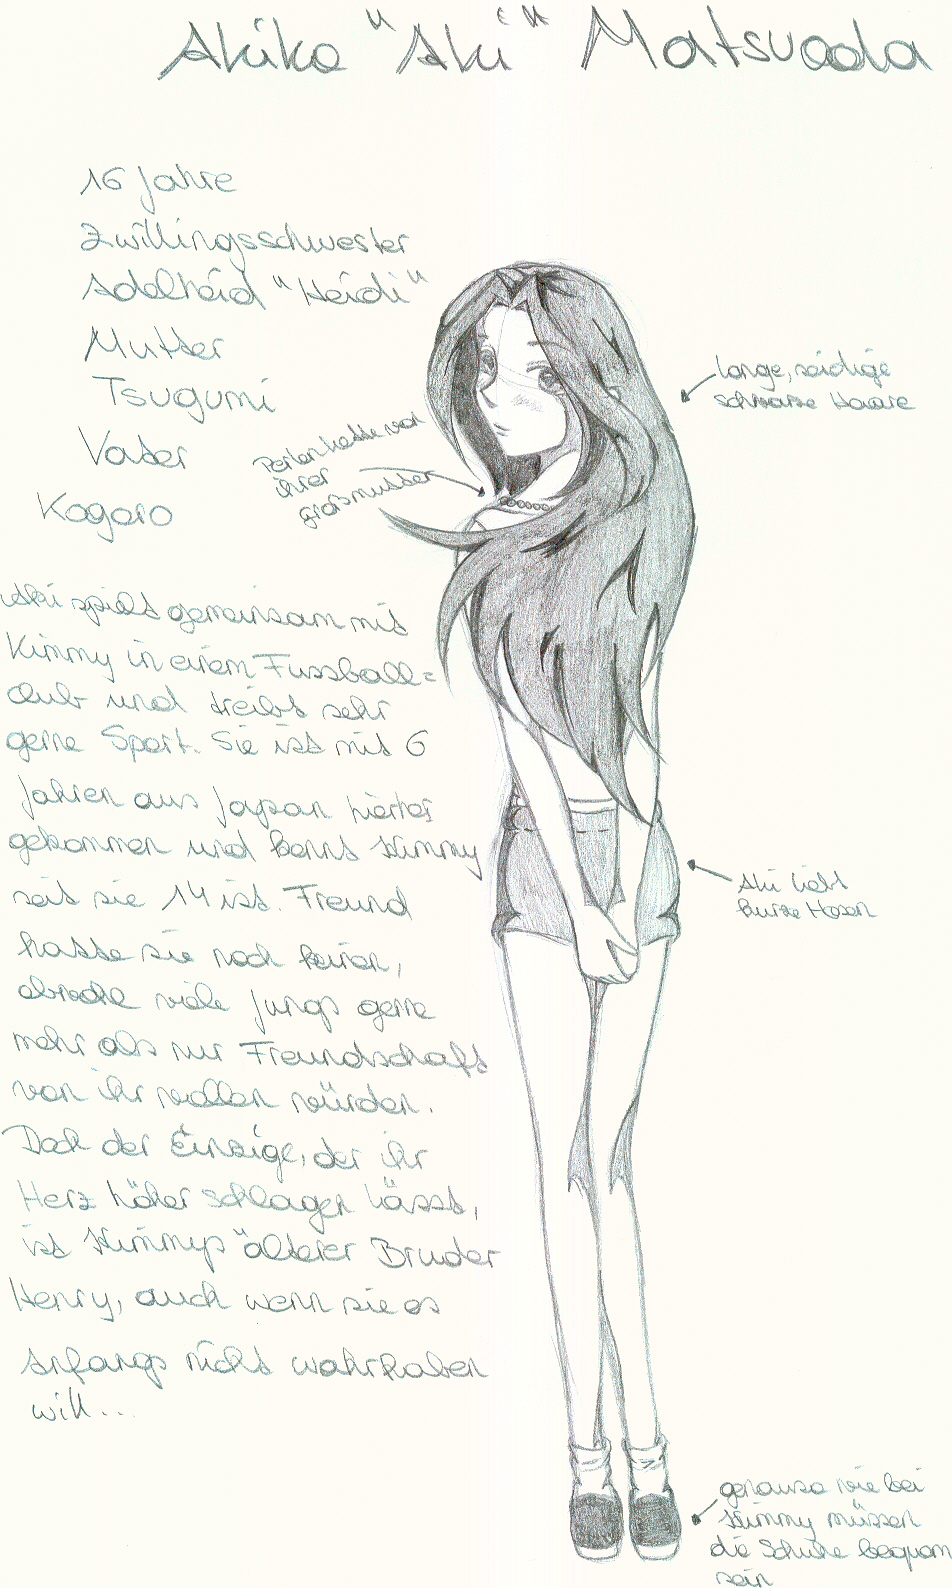 Akiko "Aki" Matsuada
16 Jahre
Zwillingsschwester
Adelheid "Heidi"
Mutter
Tsugumi
Vater
Kogoro
lange, seidige
schwarze Haare
Perlenkette von
ihrer
Grossmutter
Aki spielt gemeinsam mit
Kimmy in einem Fussball=
club und treibt sehr
gerne Sport. Sie ist mit 6
Jahren aus Japan hierher
gekommen und kennt Kimmy
seit sie 14 ist. Freund
hatte sie noch keinen,
obwohl viele Jungs gerne
mehr als nur Freundschaft
von ihr wollen würden.
Doch der Einzige, der ihr
Herz höher schlagen lässt,
ist Kimmys älterer Bruder
Henry, auch wenn sie es
anfangs nicht wahrhaben
will...
Aki liebt
kurze Hosen
genauso wie bei
Kimmy müssen
die Schuhe bequem
sein